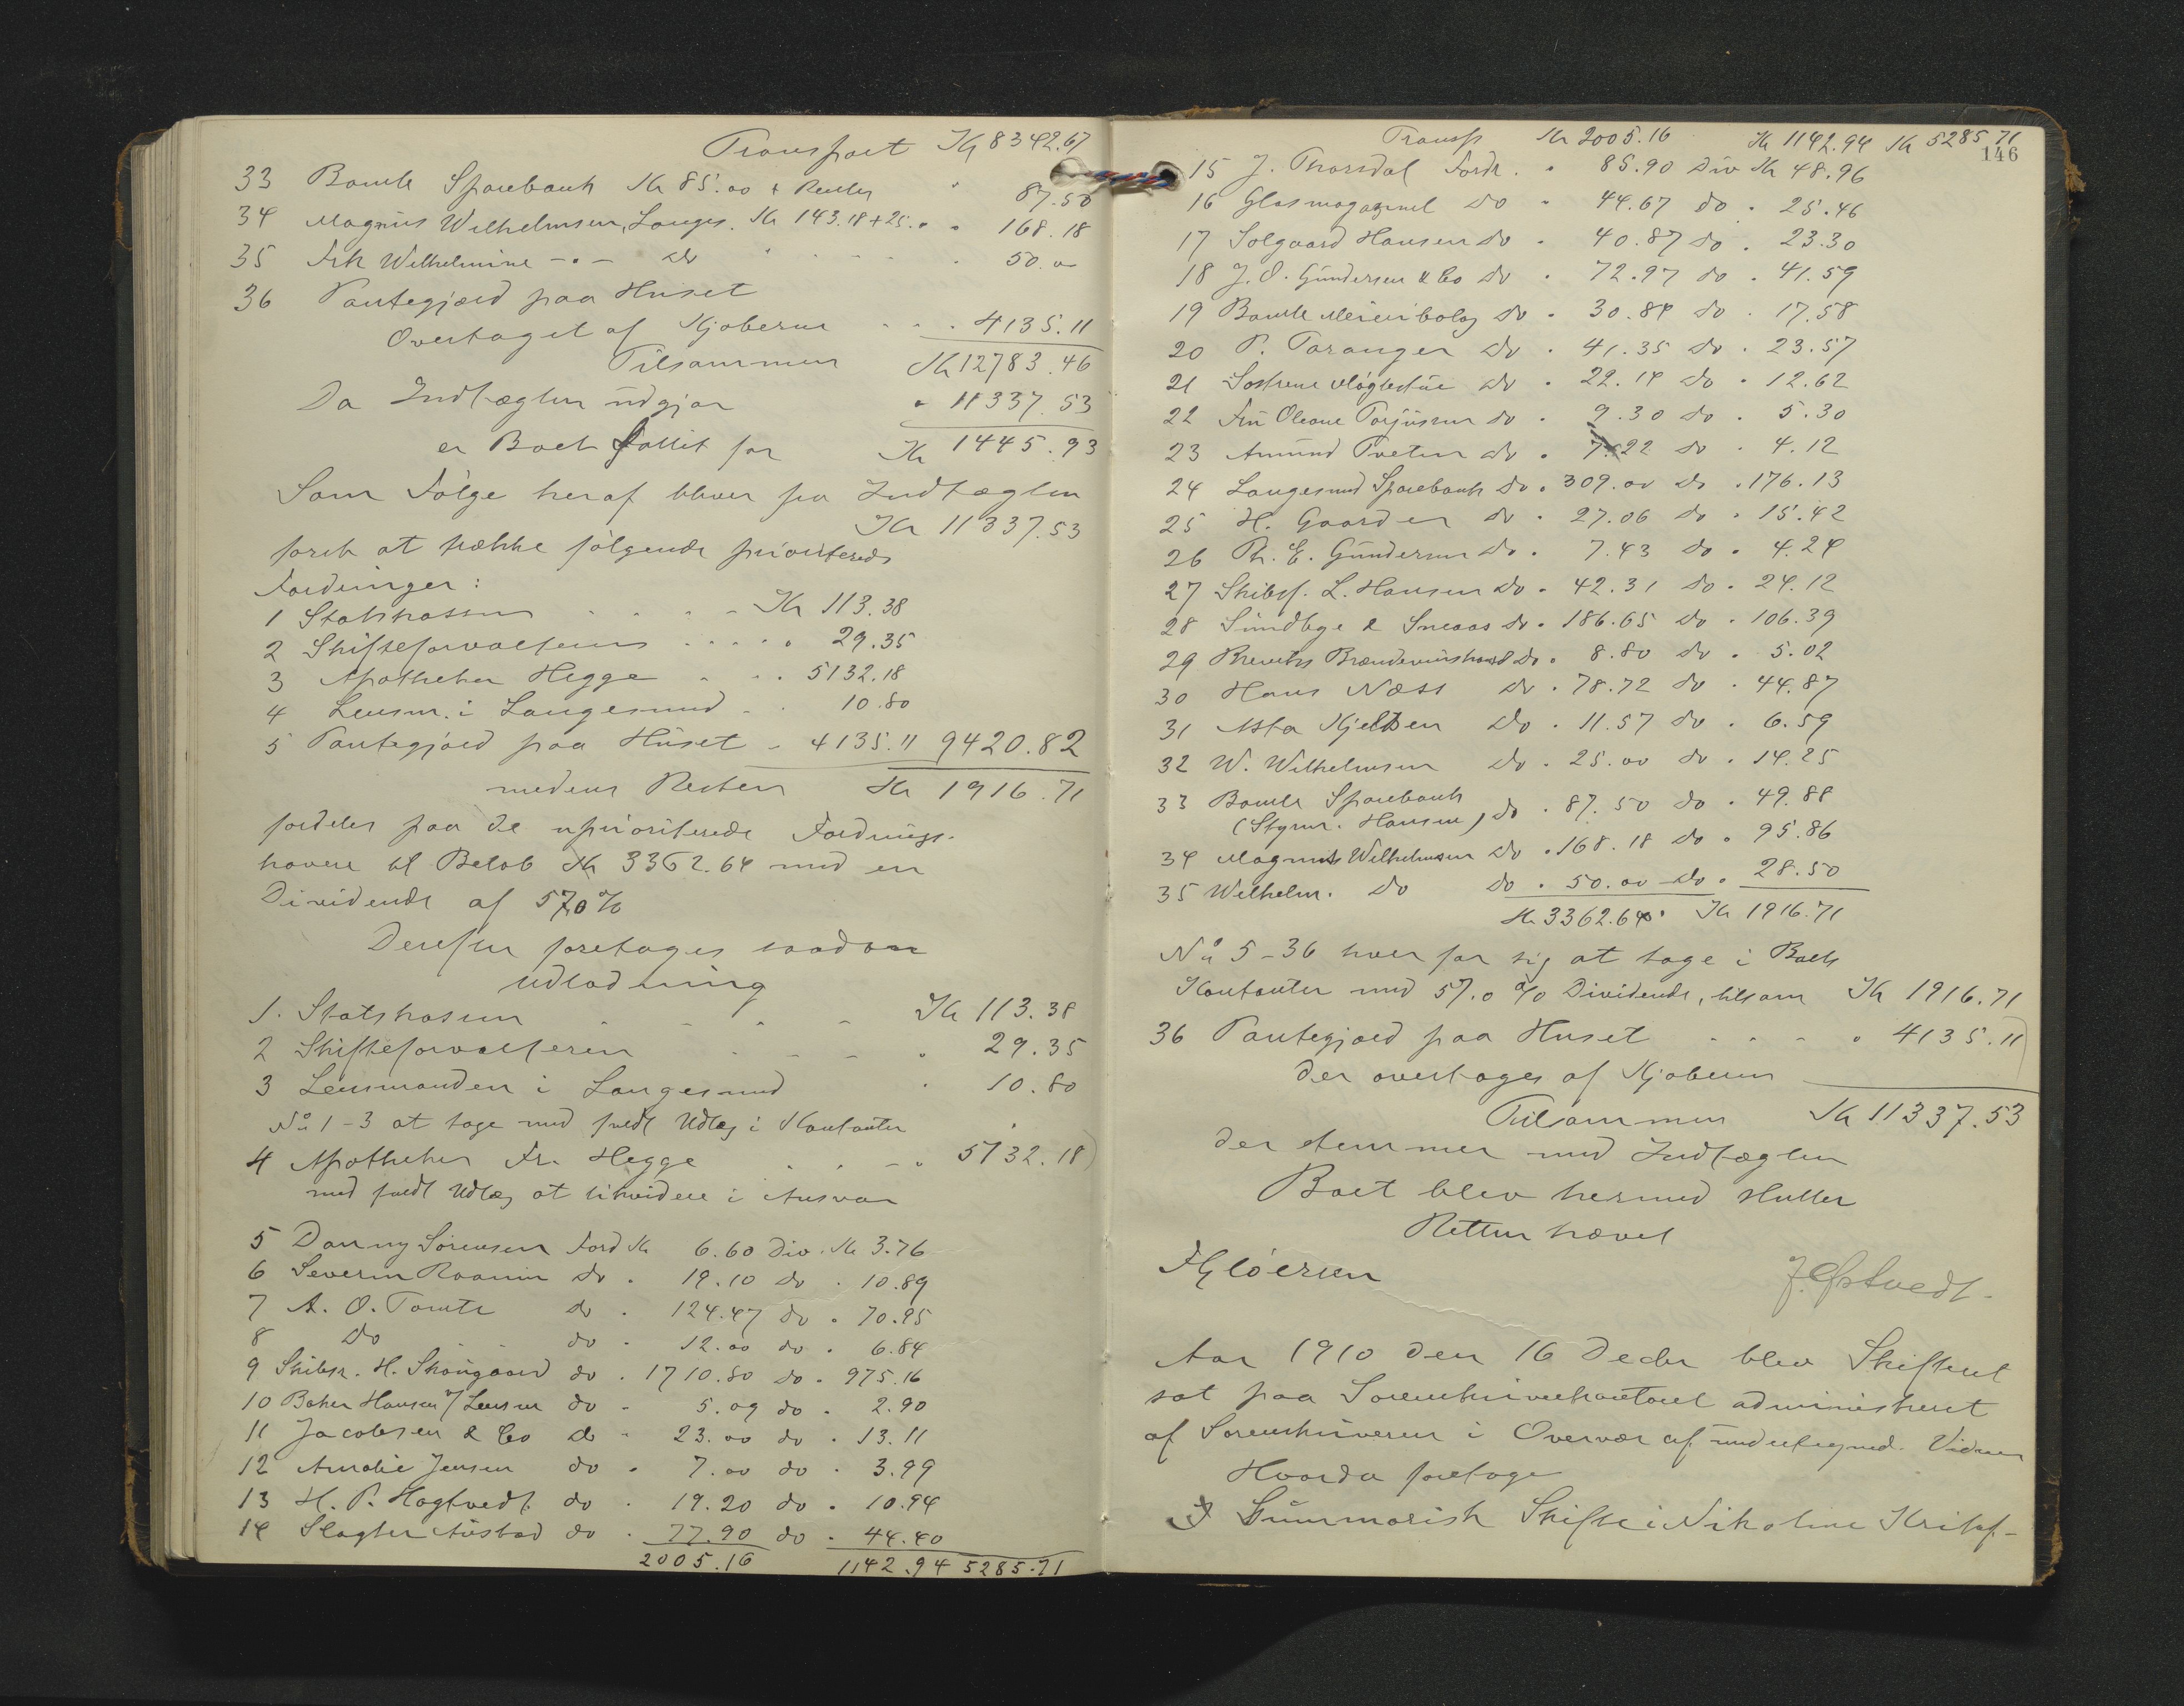 Transport Kr 8342.67
33 Bamle Sparebank Kr 85.00 + Renter " 87.50
34 Magnus Wilhelmsen, Langes. Kr 143.18 + 25. " " 168.18
35 Frk Wilhelmine -"- do " 50.00
36 Pantegjæld paa Huset
Overtaget af Kjøberne " 4135.11
Tilsammen Kr 12783.46
Da Indtægten udgjør " 11337.53
er Boet fallit for Kr 1445.93
Som Følge heraf bliver fra Indtægten
Kr 11337.53
forsk at trække følgende prioriterede
Fordringer:
1 Statskassen Kr 113.38
2 Skifteforvalteren " 29.35
3 Apotheker Hegge " 5132.18
4 Lensm. i Langesund " 10.80
5 Pantegjæld paa Huset - 4135.11 9420.82
medens Resten Kr 1916.71
fordeles paa de upriorterede Fordrings-
havere til Beløb Kr 3362.64 med en
Dividende af 57,0 %
Derefter foretages saadan
Udlodning
1. Statskassen Kr 113.38
2 Skifteforvalteren " 29.35
3 Lensmanden i Langesund " 10.80
No 1-3 at tage med fuldt Udlæg i Kontanter
4 Apotheker Fr. Hegge " 5132.18)
med fuldt Udlæg at likvidere i Ansvar
5 Danny Sørensen Ford Kr 6.60 Div. Kr 3.76
6 Severin Raanin do " 19.10 do " 10.89
7 A. O. Tomte do " 124.47 do " 70.95
8 do do " 12.00 do " 6.84
9 Skibsr. H. Skougaard do " 1710.80 do " 975.16
10 Baker Hansen v/ Lensm do " 5.09 do " 2.90
11 Jacobsen & Co do " 23.00 do " 13.11
12 Amalie Jensen do " 7.00 do " 3.99
13 H. P. Hogtvedt do " 19.20 do " 10.94
14 Slagter Austad do " 77.90 do " 44.40
2005.16 1142.94 5285.71
146
Transp Kr 2005.16 Kr 1142.94 Kr 5285.71
15 J. Thorsdal Fordr. " 85.90 Div Kr 48.96
16 Glasmagazinet do " 44.67 do " 25.46
17 Solgaard Hansen do " 40.87 do " 23.30
18 J. O. Gundersen & Co do " 72.97 do " 41.59
19 Bamle Meieribolag do " 30.84 do " 17.58
20 P. Taranger do " 41.35 do " 23.57
21 Søstrene Møglestue do " 22.14 do " 12.62
22 Fru Oleane Torjussen do " 9.30 do " 5.30
23 Amund Tveten do " 7.22 do " 4.12
24 Langesund Sparebank do " 309.00 do " 176.13
25 H. Gaarder do " 27.06 do " 15.42
26 Th. E. Gundersen do " 7.43 do " 4.24
27 Skibsf. L. Hansen do " 42.31 do " 24.12
28 Sundbye & Sneaas do " 186.65 do " 106.39
29 Breviks Brændevinshand do " 8.80 do " 5.02
30 Hans Næss do " 78.72 do " 44.87
31 Asta Kjeldsen do " 11.57 do " 6.59
32 W. Wilhelmsen do " 25.00 do " 14.25
33 Bamle Sparebank
(Styrm. Hansen) do " 87.50 do " 49.88
34 Magnus Wilhelmsen do " 168.18 do " 95.86
35 Wilhelm. do do " 50.00 do " 28.50
Kr 3362.64 " Kr 1916.71
No 5-36 hver for sig at tage i Boets
Kontanter med 57.0 % Dividende, tilsam Kr 1916.71
36 Pantegjæld paa Huset " 4135.11)
der overtages af Kjøberen
Tilsammen Kr 11337.53
der stemmer med Indtægten
Boet blev hermed sluttet
Retten hævet
J. Østvedt.
Aar 1910 den 16 Decbr blev Skifteret
sat paa Sorenskriverkontoret administreret
af Sorenskriveren i Overvær af undertegned. Vidner
Hvorda foretoges
I Summarisk Skifte i Nikoline Kristof-